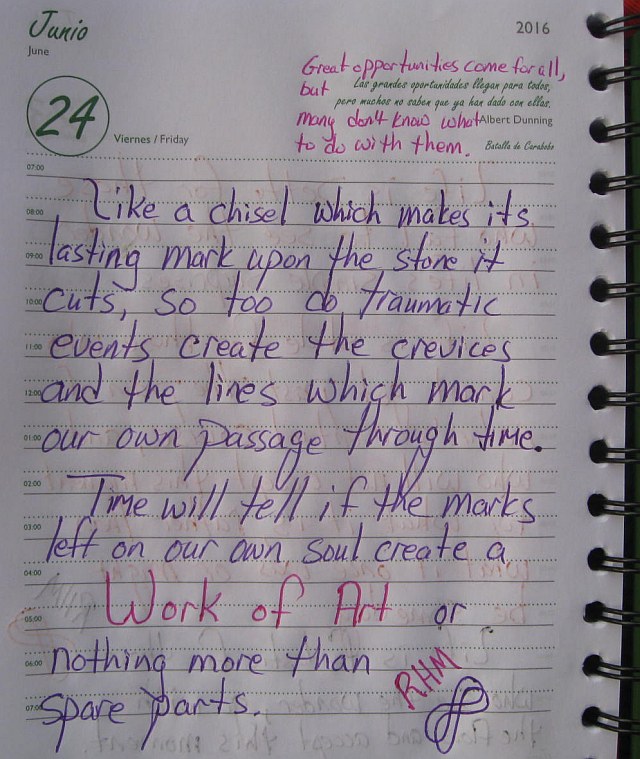 Junio
June
2016
24
Viernes / Friday
Great opportunities come for all,
Las grandes oportunidades llegan para todos,
but
pero muchos no saben que ya han dado con ellas.
many don't know what
Albert Dunning
to do with them.
Batalla de Carabobo
07:00
08:00 Like a chisel which makes its
09:00 lasting mark upon the stone it
10:00 cuts, so too do traumatic
11:00 events create the crevices
12:00 and the lines which mark
01:00 our own passage through time.
02:00 Time will tell if the marks
03:00 left on our own soul create a
04:00
05:00 Work of Art or
06:00 nothing more than
RHM
07:00 spare parts.